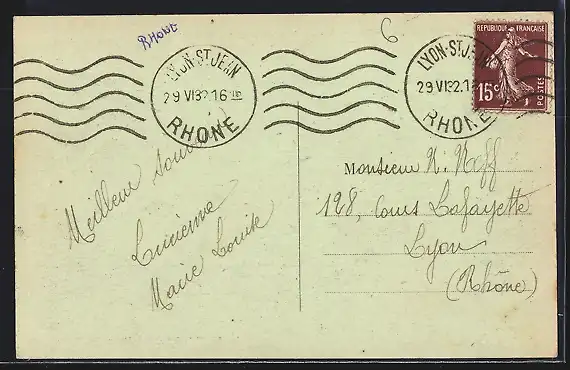 RHONE
6
LYON-ST JEAN
29 VI 32. 16
RHONE
LYON-ST JEAN
29 VI 32. 1
RHONE
REPUBLIQUE FRANÇAISE
15c
POSTES
Meilleur souvenir
Lucienne
Marie Louise
Monsieur N. Naff
128, Cours Lafayette
Lyon
(Rhône)